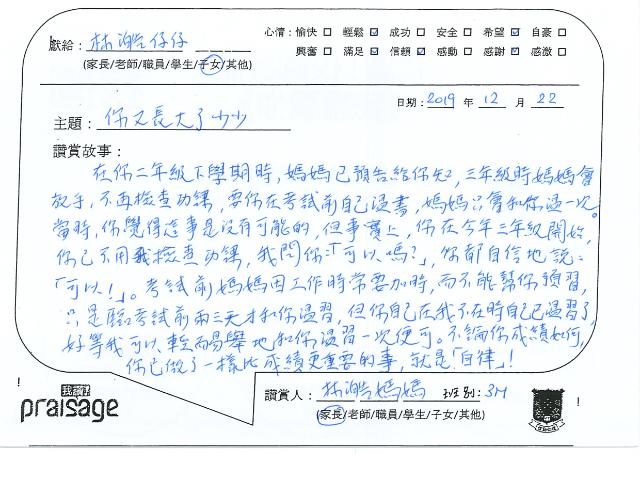 獻給：林澔仔仔
(家長/老師/職員/學生/子女/其他)
心情：愉快 □ 輕鬆 ☑ 成功 □ 安全 □ 希望 ☑ 自豪 □
興奮 □ 滿足 ☑ 信賴 ☑ 感動 □ 感謝 ☑ 感激 □
日期：2019 年 12 月 22
主題：你又長大了少少
讚賞故事：
在你二年級下學期時，媽媽已預告給你知，三年級時媽媽會
放手，不再檢查功課，要你在考試前自己溫書，媽媽只會和你溫一次。
當時，你覺得這事是沒有可能的，但事實上，你在今年三年級開始，
你已不用我檢查功課，我問你：「可以嗎？」，你都自信地說：
「可以！」。考試前媽媽因工作時常要加時，而不能幫你預習，
只是臨考試前兩三天才和你溫習，但你自己在我不在時自己已溫習了，
好等我可以輕而易舉地和你溫習一次便可。不論你成績如何，
你已做了一樣比成績更重要的事，就是「自律」！
我讚！
praisage
讚賞人：林澔媽媽 班別：3M
(家長/老師/職員/學生/子女/其他)